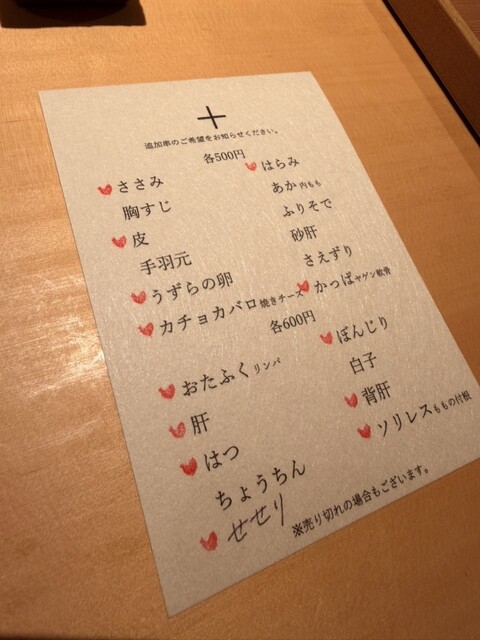 +
追加串のご希望をお知らせください。
各500円
ささみ
胸すじ
皮
手羽元
うずらの卵
カチョカバロ 焼きチーズ
はらみ
あか 内もも
ふりそで
砂肝
さえずり
かっぱ ヤゲン軟骨
各600円
おたふく リンパ
肝
はつ
ちょうちん
せせり
ぼんじり
白子
背肝
ソリレス ももの付根
※売り切れの場合もございます。